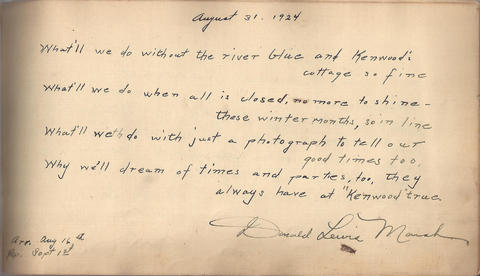 August 31. 1924
What'll we do without the river blue and Kenwood's
cottage so fine
What'll we do when all is closed, no more to shine -
those winter months, so in line
What'll we do with just a photograph to tell our
good times too.
Why we'll dream of times and parties, too, they
always have at "Kenwood" true.
Donald Lewis Marsh
Arr. Aug 16th
Sept 1st